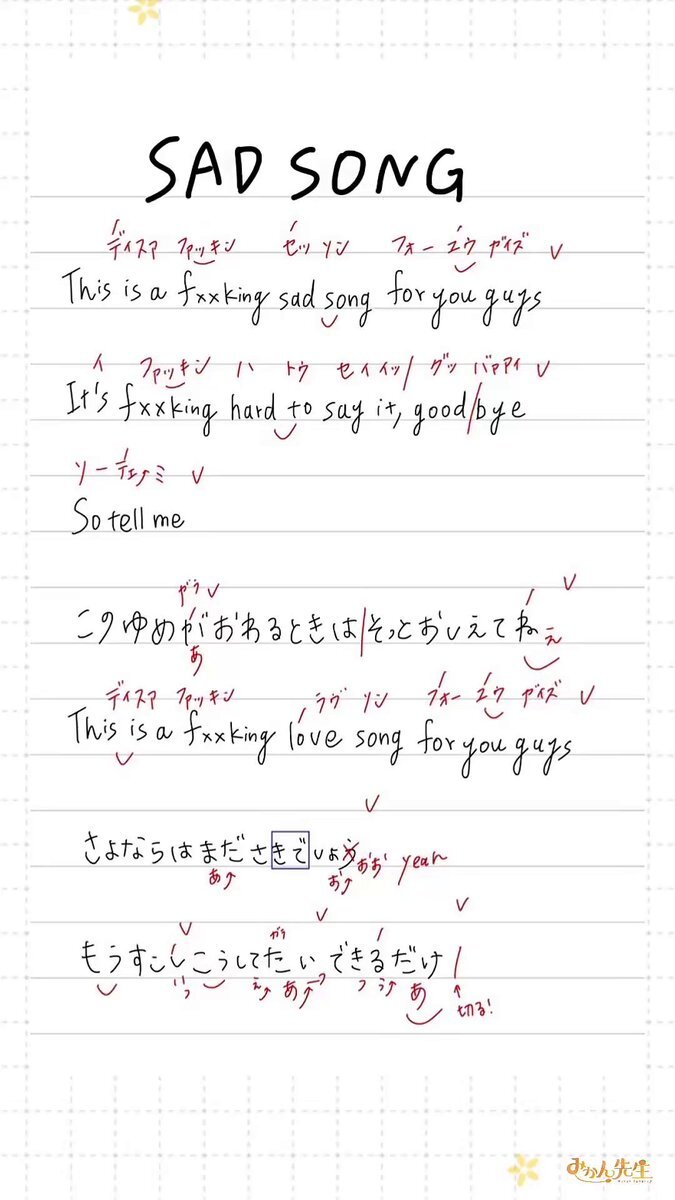 SAD SONG
ディスァ ファッキン セッ ソン フォー ユウ ガイズ V
This is a fxxking sad song for you guys
イ ファッキン ハ トゥ セイイッ/ グッ バァアイ V
It's fxxking hard to say it, good/bye
ソー テェ ミ V
So tell me
がう V V
このゆめがおわるときは/そっとおしえてね
あ え
ディスァ ファッキン ラヴ ソン フォー ユウ ガイズ V
This is a fxxking love song for you guys
V
さよならはまださきでしよう おお yeah
あ↗ お↗
V がう V V
もうすこしこうしてたいできるだけ/
いっ え↗ あ↗っ っ う↗ あ ↑切る!
みかん先生